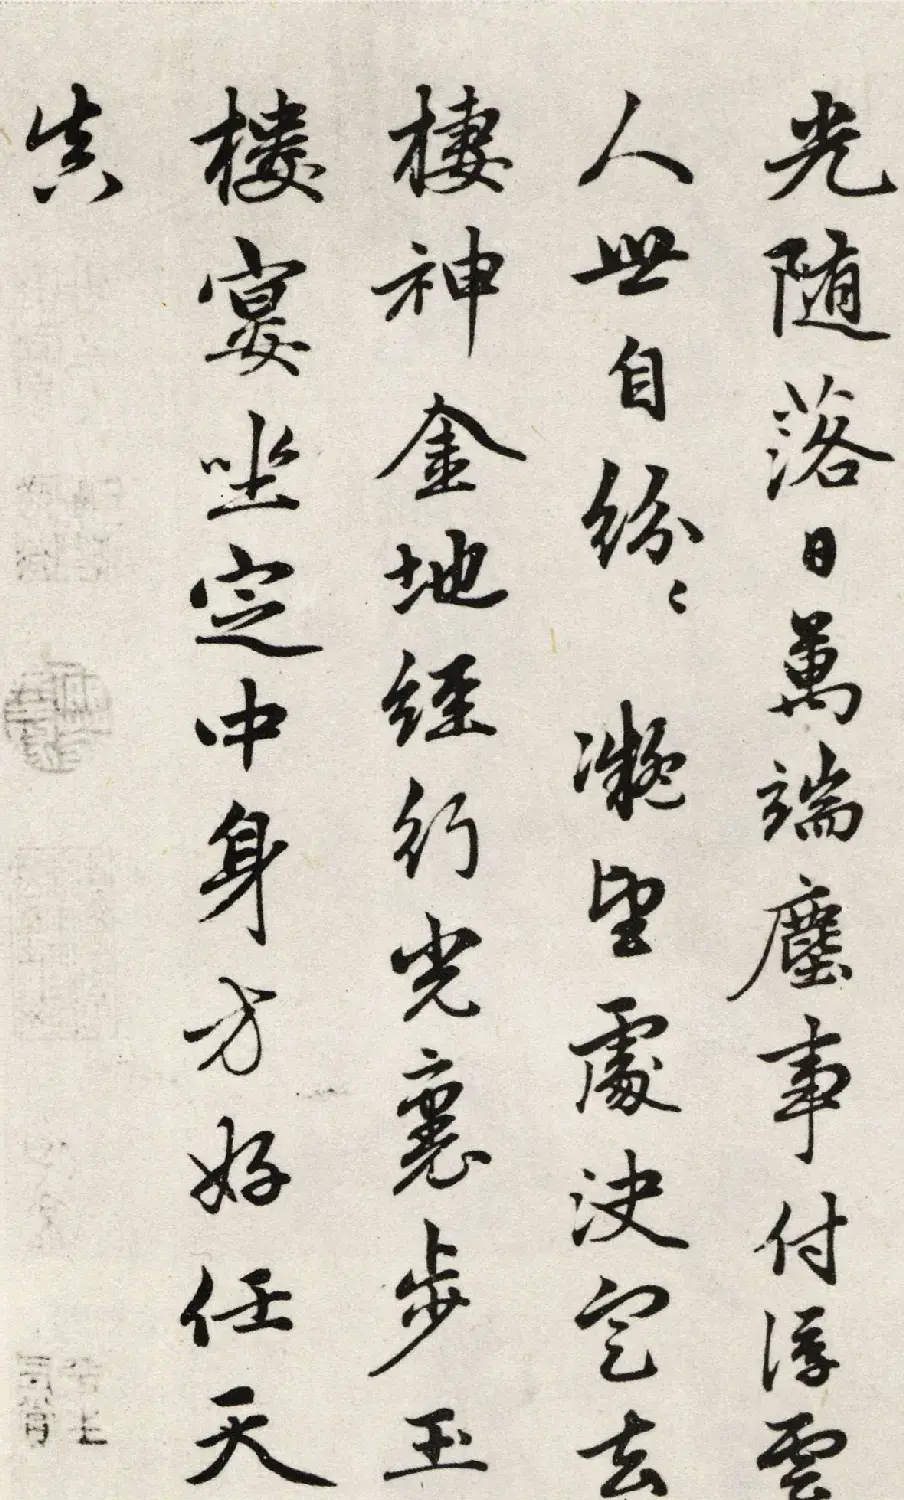 光随落日萬端塵事付浮雲
人世自紛〻 凝望處決定去
棲神金地經行光裏步玉
樓宴坐定中身方好任天
真